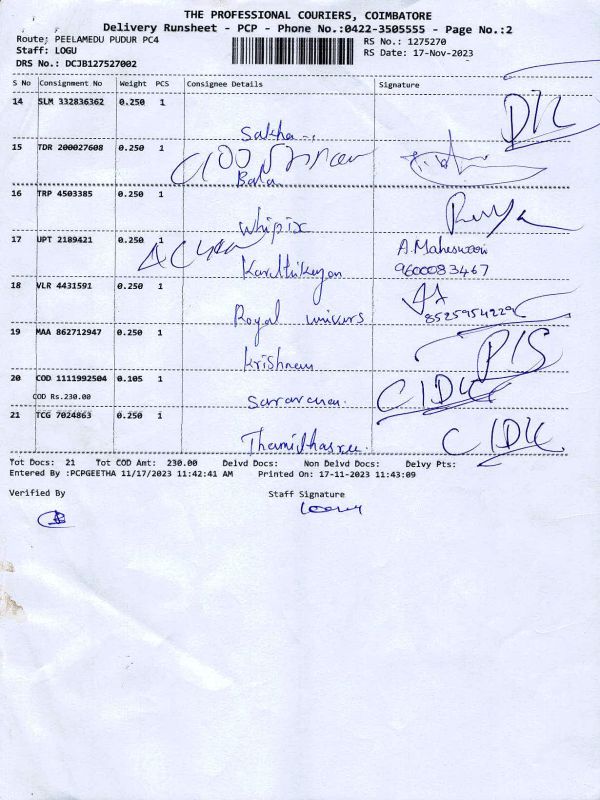 THE PROFESSIONAL COURIERS, COIMBATORE
Delivery Runsheet - PCP - Phone No.:0422-3505555 - Page No.:2
Route: PEELAMEDU PUDUR PC4 RS No.: 1275270
Staff: LOGU RS Date: 17-Nov-2023
DRS No.: DCJB127527002
S No Consignment No Weight PCS Consignee Details Signature
14 SLM 332836362 0.250 1
15 TDR 200027608 0.250 1
Bala
16 TRP 4503385 0.250 1
Whipix
17 UPT 2189421 0.250 1 A. Maheswari
Karthikeyan 9600083467
18 VLR 4431591 0.250 1
Royal univers 8525954229
19 MAA 862712947 0.250 1
Krishnan
20 COD 1111992504 0.105 1
COD Rs.230.00 Saravanan.
21 TCG 7024863 0.250 1
Thamidhasree.
Tot Docs: 21 Tot COD Amt: 230.00 Delvd Docs: Non Delvd Docs: Delvy Pts:
Entered By :PCPGEETHA 11/17/2023 11:42:41 AM Printed On: 17-11-2023 11:43:09
Verified By Staff Signature